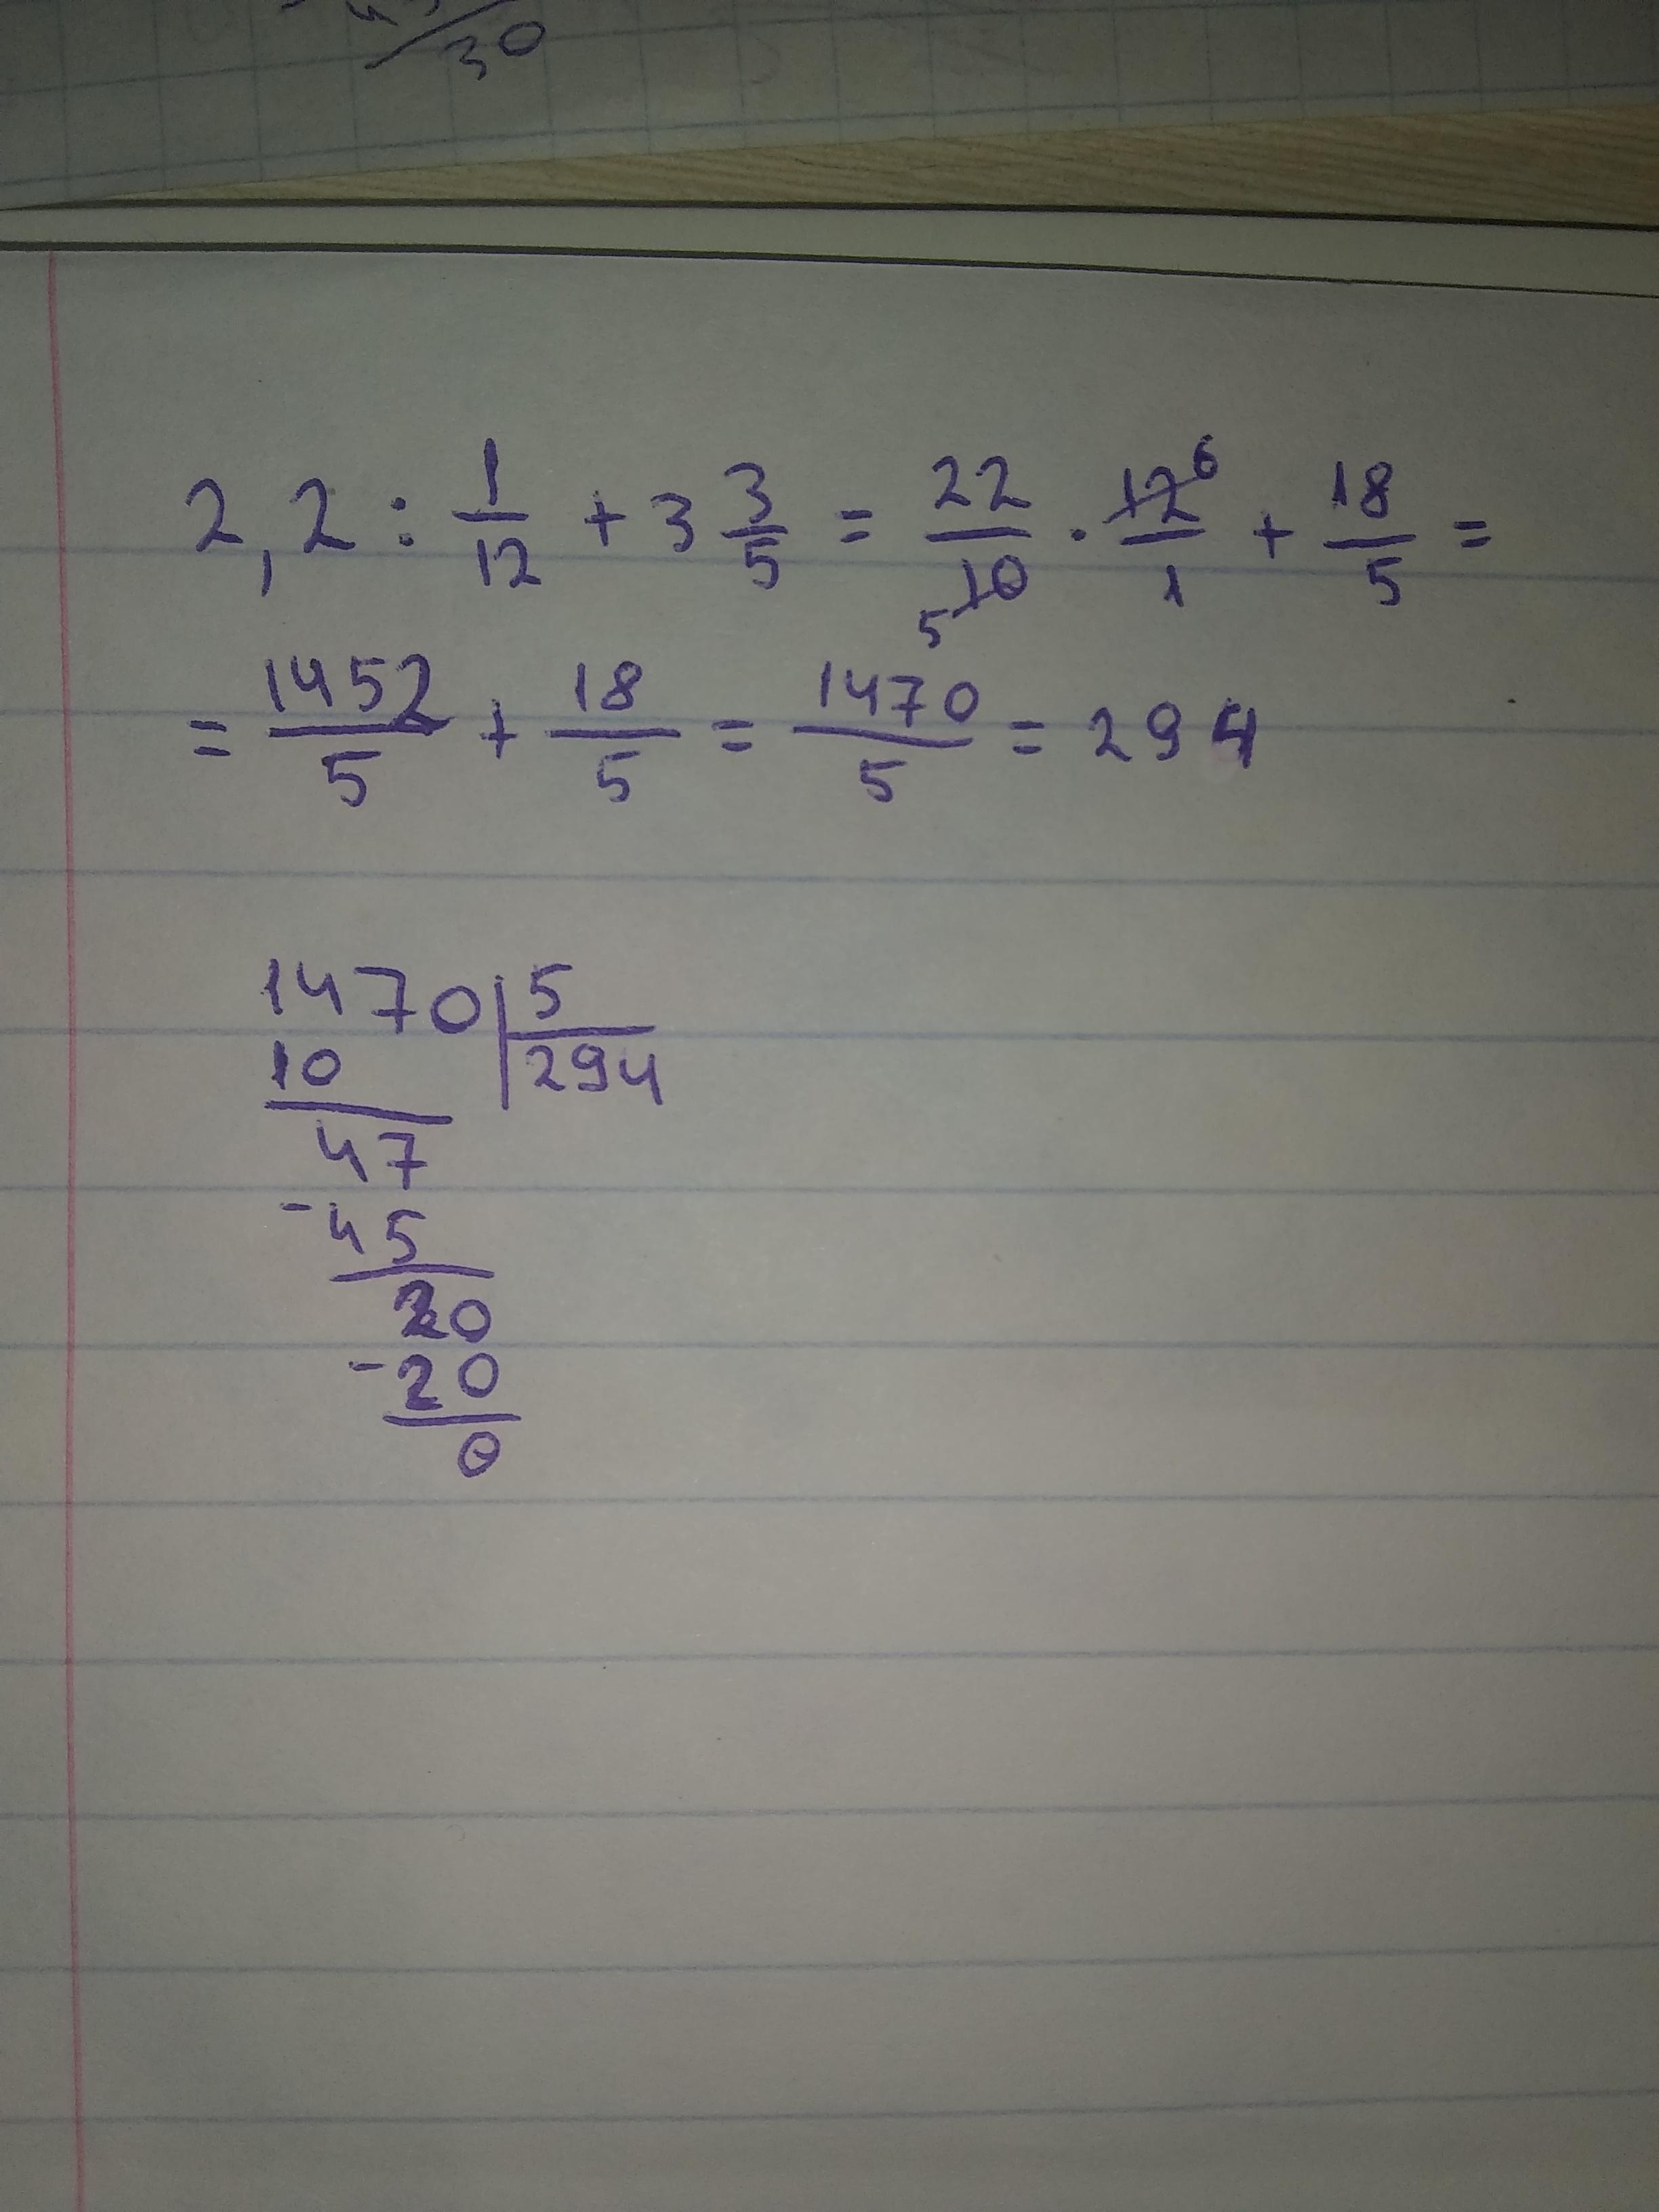 30
2,2 : 1/12 + 3 3/5 = 22/10 5 · 12 6/1 + 18/5 =
= 1452/5 + 18/5 = 1470/5 = 294
1470 | 5
10 | 294
47
- 45
20
- 20
0